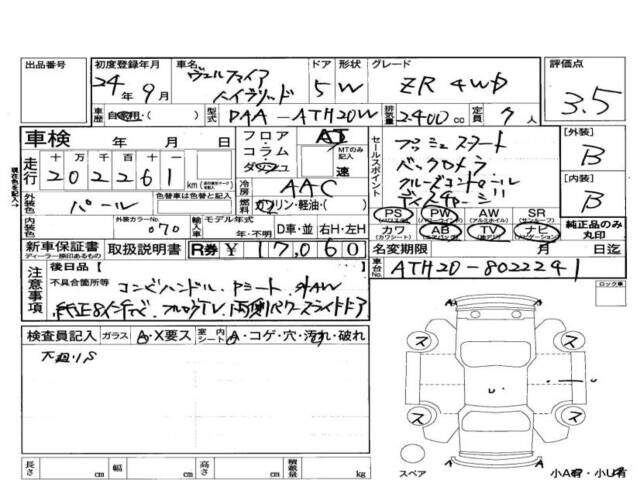 出品番号 初度登録年月 車名 ドア 形状 グレード 評価点
24年9月 ヴェルファイア ハイブリッド 5 W ZR 4WD 3.5
車歴 自家用・( ) 型式 DAA-ATH20W 排気量 2400cc 定員 7人
車検 年 月 日 フロア・コラム・ダッシュ AT MTのみ記入 速
走行 十 万 千 百 十 一
202261 km
冷房 AAC
外装色 パール 色替車は色替前の色 ( ) 燃料 ガソリン・軽油・( )
内装色 外装カラーNo. 070 輸入車 モデル年式 年・不明 D車・並 右H・左H
新車保証書 取扱説明書 R券 ¥ 17,060
ディーラー検印あるもの
セールスポイント
プッシュスタート
バックカメラ
クルーズコントロール
ディスチャージ
PS PW AW SR
(パワステ) (パワーウインド) (アルミホイル) (サンルーフ)
カワ AB TV ナビ
(カワシート) (エアバッグ) (ナビゲーション)
[外装] B
[内装] B
純正品のみ丸印
名変期限 月 日迄
車台No. ATH20-8022241
現在色を記入→
注意事項 後日品 ( )
不具合箇所等 コンビハンドル、Pシート、外AW
純正8インチナビ、フルセグTV、両側パワースライドドア
ロック車
検査員記入 ガラス A・X要ス 室内シート A・コゲ・穴・汚れ・破れ
ス ス
ス ス
スペア
小A有・小U有
長さ cm 幅 cm 高さ cm 積載量 kg